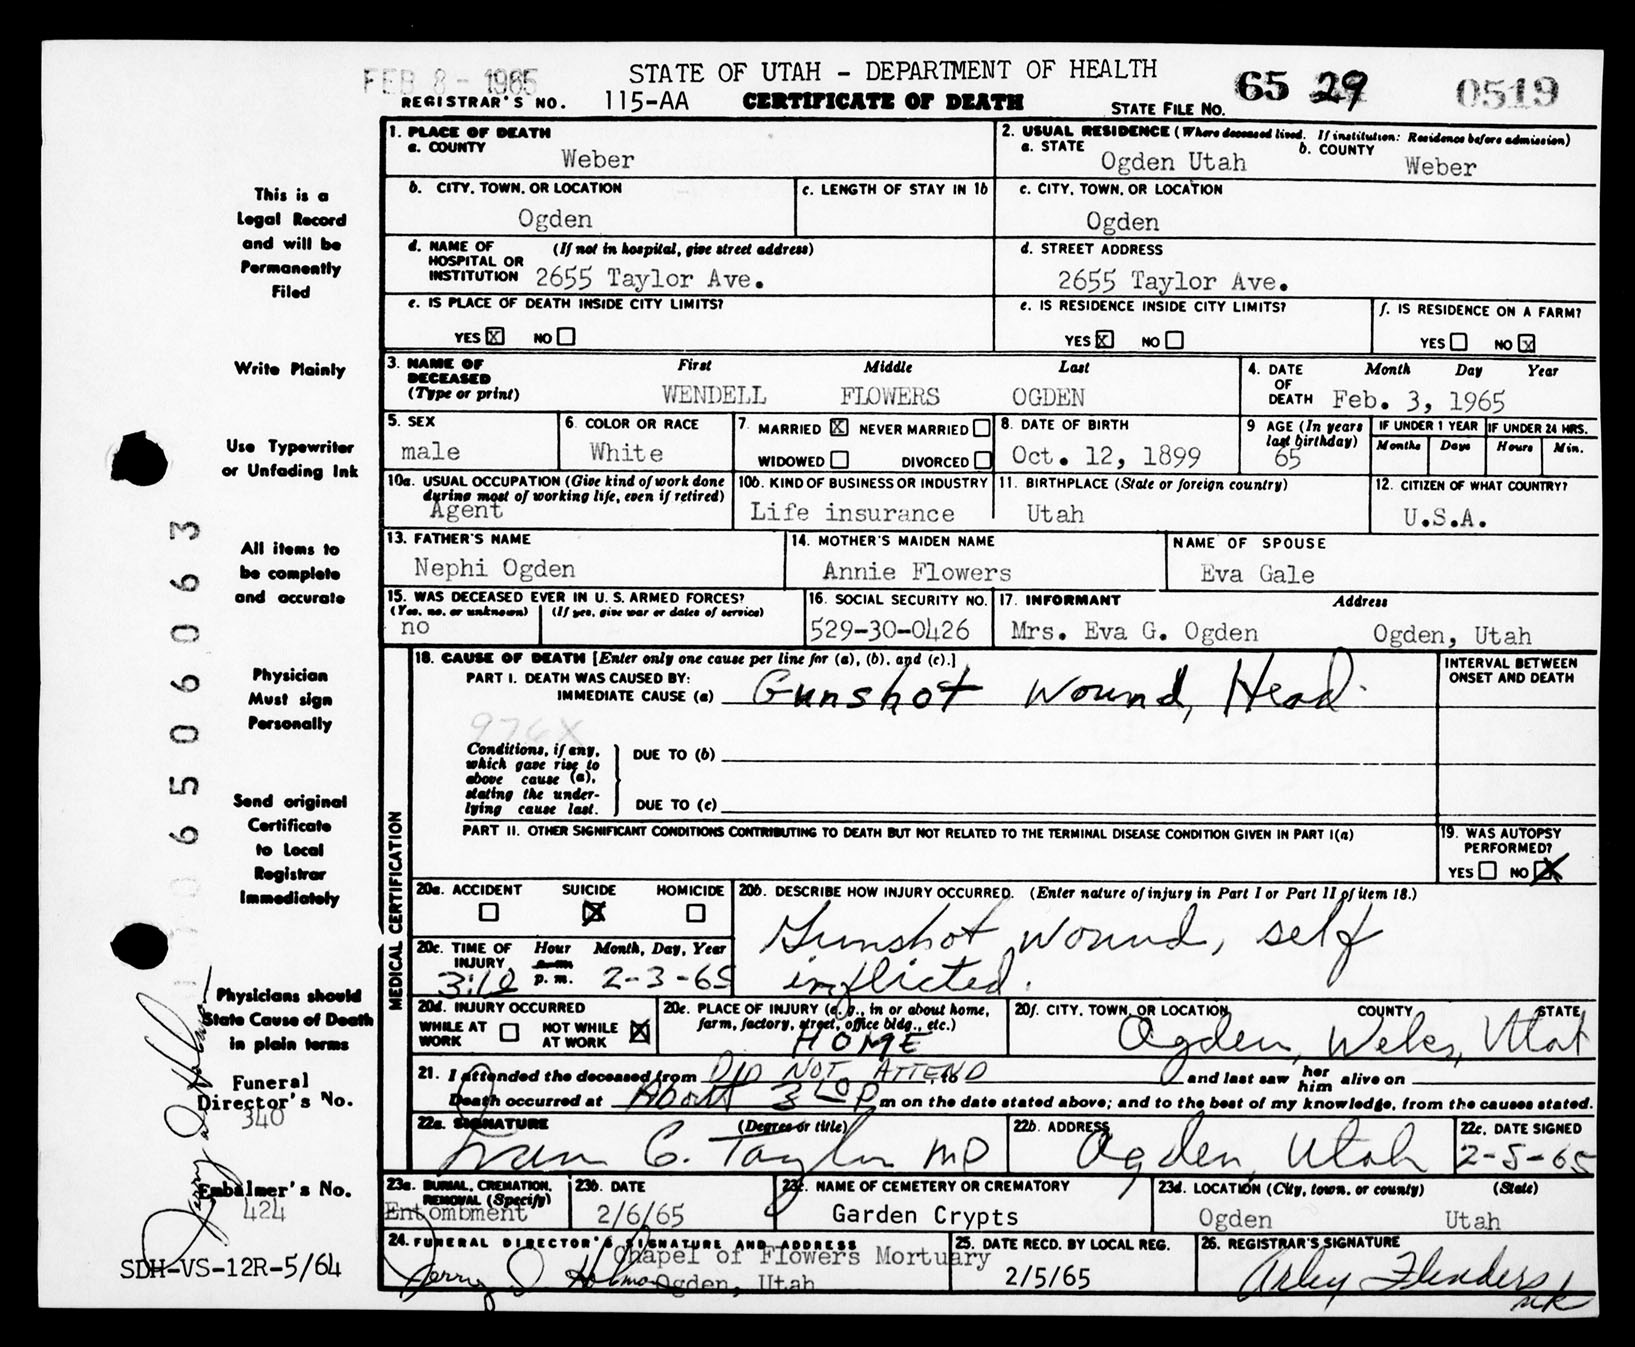 FEB 8 - 1965
STATE OF UTAH - DEPARTMENT OF HEALTH
65 29 0519
REGISTRAR'S NO. 115-AA CERTIFICATE OF DEATH STATE FILE NO.
1. PLACE OF DEATH
a. COUNTY
Weber
2. USUAL RESIDENCE (Where deceased lived. If institution: Residence before admission)
a. STATE b. COUNTY
Ogden Utah Weber
b. CITY, TOWN, OR LOCATION
Ogden
c. LENGTH OF STAY IN 1b
c. CITY, TOWN, OR LOCATION
Ogden
d. NAME OF (If not in hospital, give street address)
HOSPITAL OR
INSTITUTION 2655 Taylor Ave.
d. STREET ADDRESS
2655 Taylor Ave.
e. IS PLACE OF DEATH INSIDE CITY LIMITS?
YES X NO
e. IS RESIDENCE INSIDE CITY LIMITS?
YES X NO
f. IS RESIDENCE ON A FARM?
YES NO X
3. NAME OF First Middle Last
DECEASED
(Type or print) WENDELL FLOWERS OGDEN
4. DATE Month Day Year
OF
DEATH Feb. 3, 1965
5. SEX
male
6. COLOR OR RACE
White
7. MARRIED X NEVER MARRIED
WIDOWED DIVORCED
8. DATE OF BIRTH
Oct. 12, 1899
9 AGE (In years
last birthday)
65
IF UNDER 1 YEAR IF UNDER 24 HRS.
Months Days Hours Min.
10a. USUAL OCCUPATION (Give kind of work done
during most of working life, even if retired)
Agent
10b. KIND OF BUSINESS OR INDUSTRY
Life insurance
11. BIRTHPLACE (State or foreign country)
Utah
12. CITIZEN OF WHAT COUNTRY?
U.S.A.
13. FATHER'S NAME
Nephi Ogden
14. MOTHER'S MAIDEN NAME
Annie Flowers
NAME OF SPOUSE
Eva Gale
15. WAS DECEASED EVER IN U.S. ARMED FORCES?
(Yes, no, or unknown) (If yes, give war or dates of service)
no
16. SOCIAL SECURITY NO.
529-30-0426
17. INFORMANT Address
Mrs. Eva G. Ogden Ogden, Utah
MEDICAL CERTIFICATION
18. CAUSE OF DEATH [Enter only one cause per line for (a), (b), and (c).]
PART I. DEATH WAS CAUSED BY:
IMMEDIATE CAUSE (a) Gunshot Wound, Head.
976X
Conditions, if any,
which gave rise to
above cause (a),
stating the under-
lying cause last.
DUE TO (b)
DUE TO (c)
INTERVAL BETWEEN
ONSET AND DEATH
PART II. OTHER SIGNIFICANT CONDITIONS CONTRIBUTING TO DEATH BUT NOT RELATED TO THE TERMINAL DISEASE CONDITION GIVEN IN PART I(a)
19. WAS AUTOPSY
PERFORMED?
YES NO X
20a. ACCIDENT SUICIDE HOMICIDE
X
20b. DESCRIBE HOW INJURY OCCURRED. (Enter nature of injury in Part I or Part II of item 18.)
Gunshot wound, self
inflicted.
20c. TIME OF Hour Month, Day, Year
INJURY a.m.
3:10 p.m. 2-3-65
20d. INJURY OCCURRED
WHILE AT NOT WHILE X
WORK AT WORK
20e. PLACE OF INJURY (e.g., in or about home,
farm, factory, street, office bldg., etc.)
HOME
20f. CITY, TOWN, OR LOCATION COUNTY STATE
Ogden, Weber, Utah
21. I attended the deceased from DID NOT ATTEND to and last saw her him alive on
Death occurred at About 3 10 P m on the date stated above; and to the best of my knowledge, from the causes stated.
22a. SIGNATURE (Degree or title)
C. Taylor MD
22b. ADDRESS
Ogden, Utah
22c. DATE SIGNED
2-5-65
23a. BURIAL, CREMATION,
REMOVAL (Specify)
Entombment
23b. DATE
2/6/65
23c. NAME OF CEMETERY OR CREMATORY
Garden Crypts
23d. LOCATION (City, town, or county) (State)
Ogden Utah
24. FUNERAL DIRECTOR'S SIGNATURE AND ADDRESS
Chapel of Flowers Mortuary
Ogden, Utah
25. DATE RECD. BY LOCAL REG.
2/5/65
26. REGISTRAR'S SIGNATURE
Arley Flinders
This is a
Legal Record
and will be
Permanently
Filed
Write Plainly
Use Typewriter
or Unfading Ink
All items to
be complete
and accurate
Physician
Must sign
Personally
Send original
Certificate
to Local
Registrar
Immediately
Physicians should
State Cause of Death
in plain terms
Funeral
Director's No.
340
Embalmer's No.
424
SDH-VS-12R-5/64
6506063